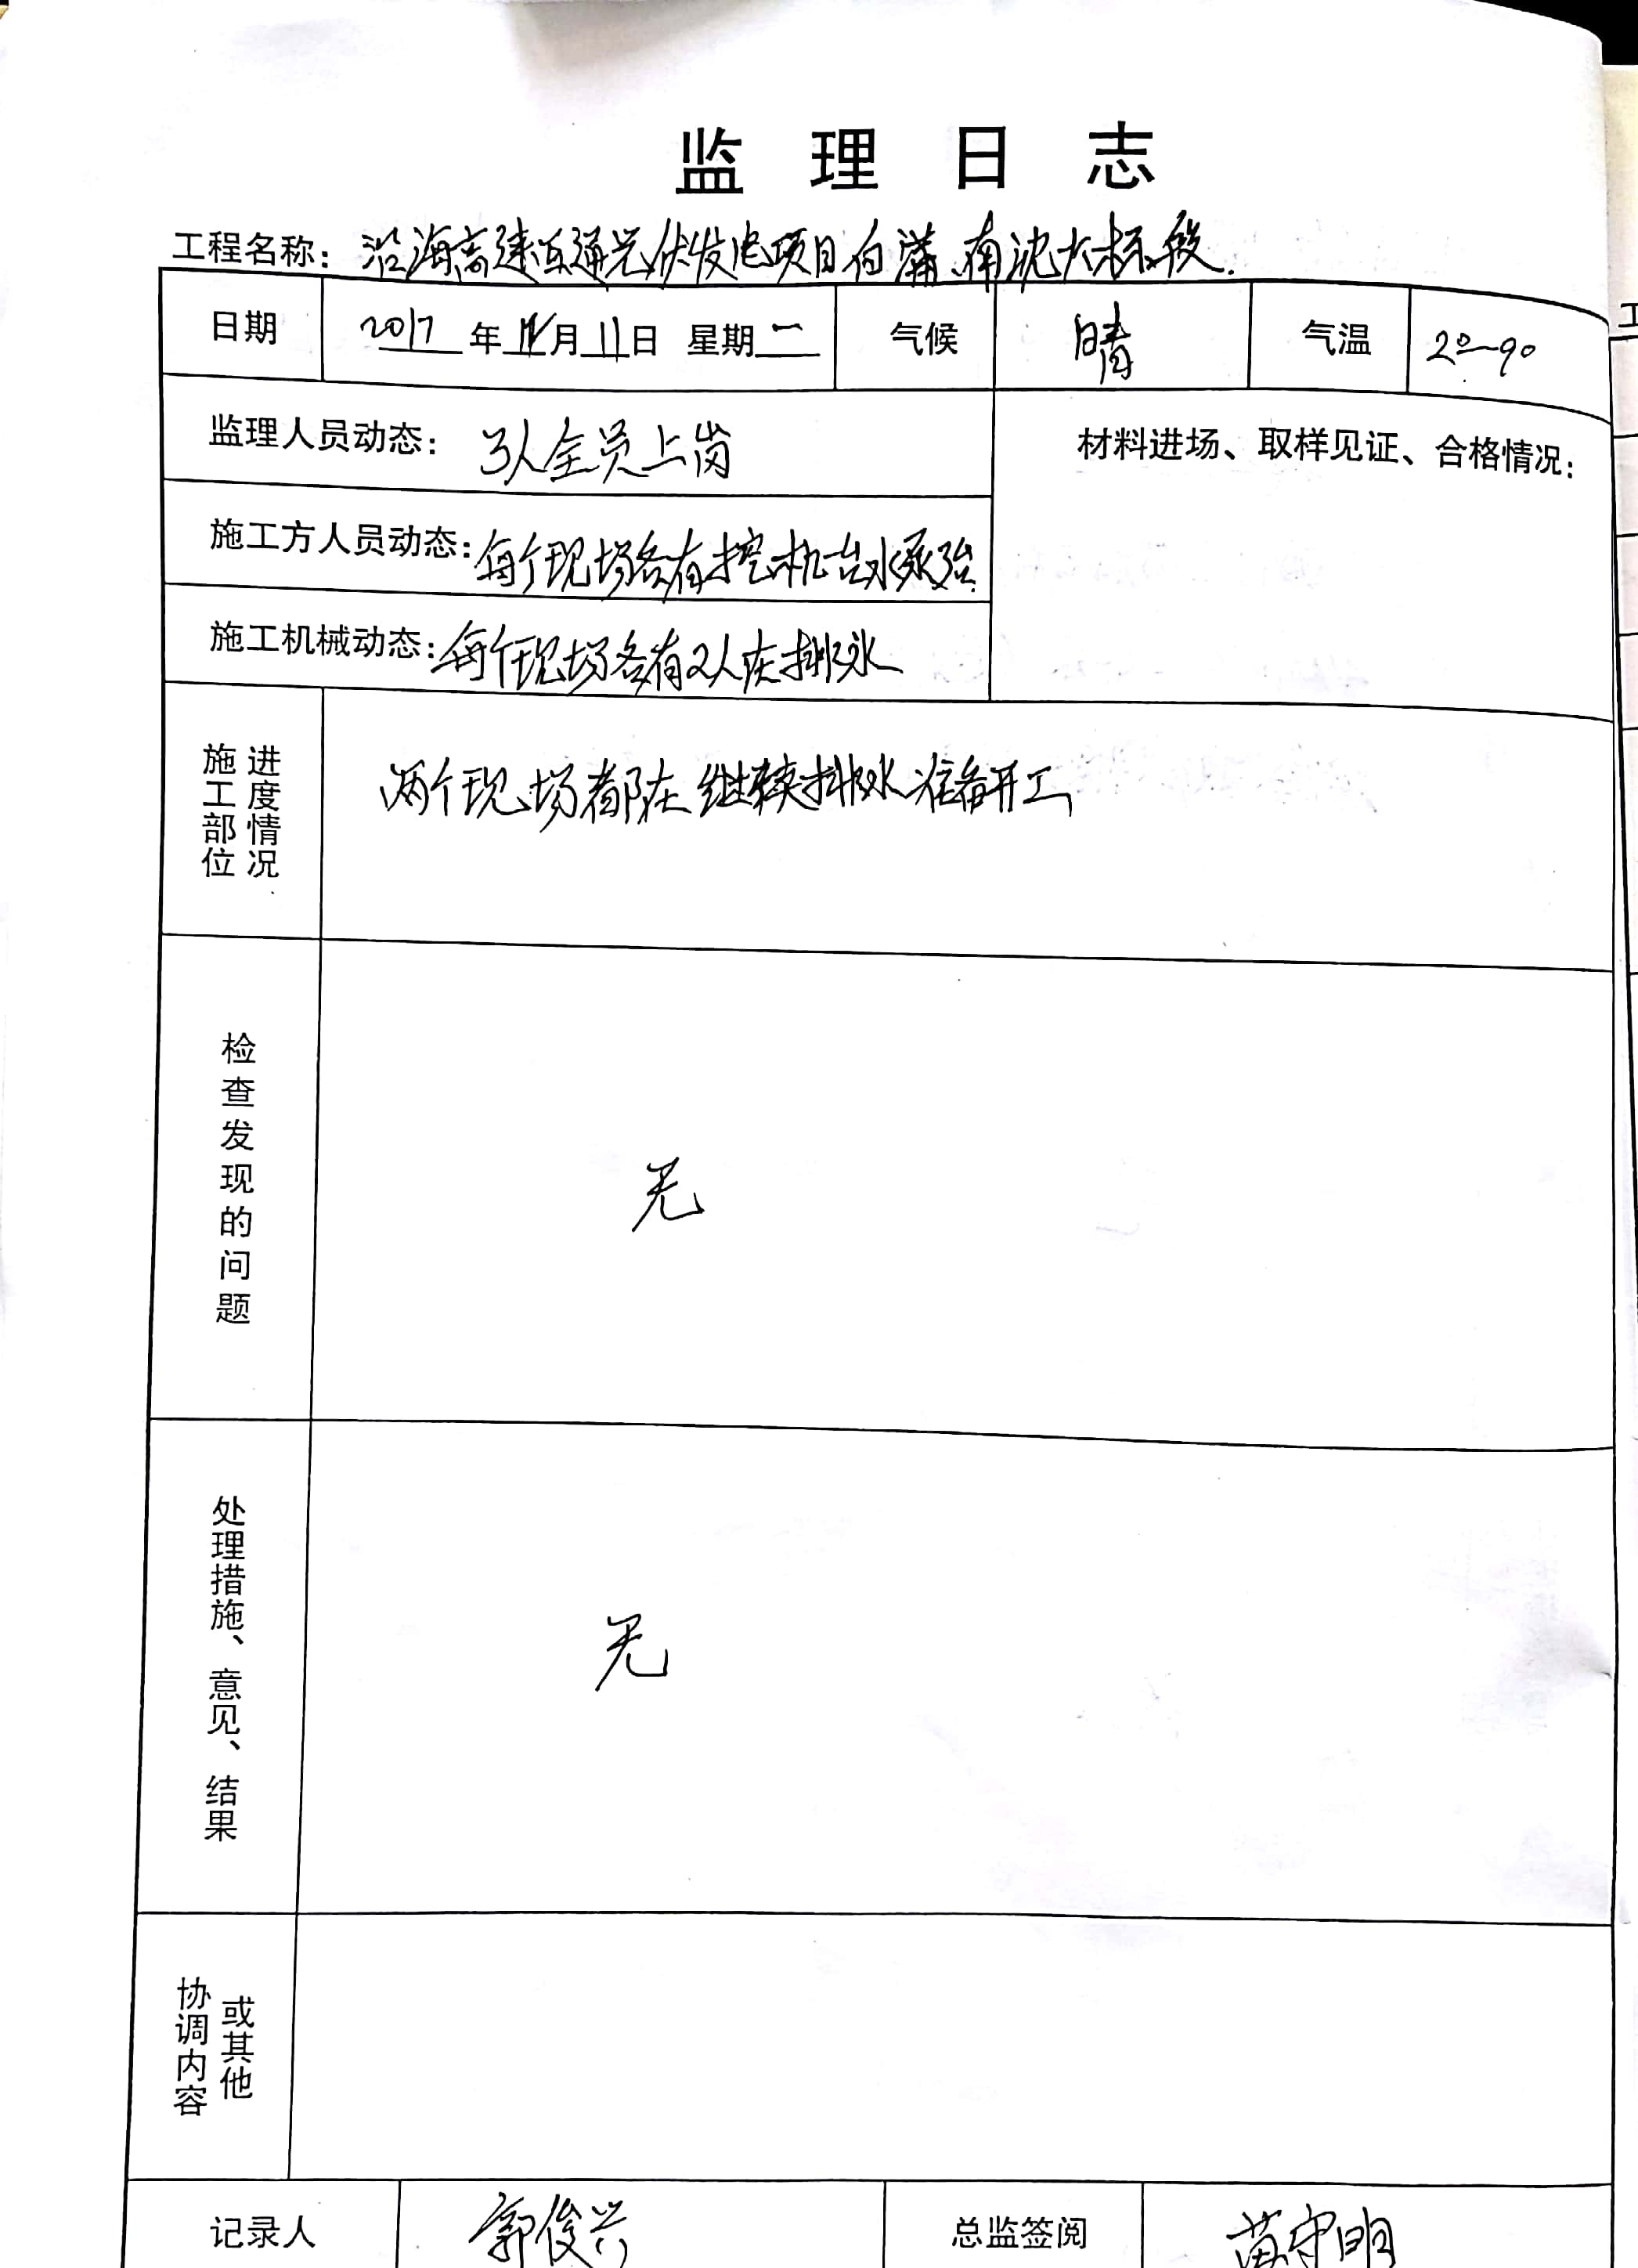 监理日志
工程名称: 沿海高速车通光伏发电项目白蒲、南沈大标段.
日期 2017年12月11日 星期一 气候 晴 气温 2°—9°
监理人员动态: 3人全员上岗 材料进场、取样见证、合格情况:
施工方人员动态: 每个现场各有挖机 台水泵
施工机械动态: 每个现场各有2人在排水
施工部位 进度情况 两个现场都在继续排水准备开工
检查发现的问题 无
处理措施、意见、结果 无
协调内容 或其他
记录人 郭俊兴 总监签阅 苗守明